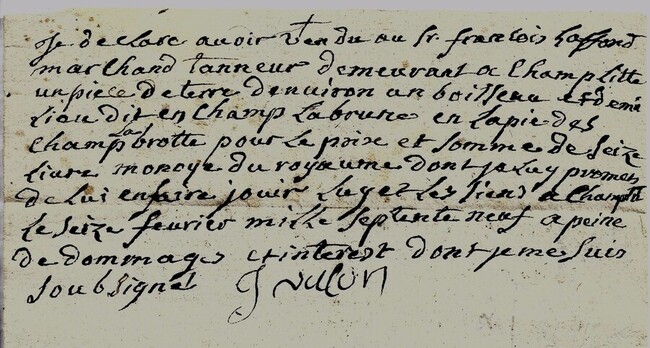 Je declare avoir vendu au Sr. francois Laffond
marchand tanneur demeurant a Champlitte
un piece de terre denviron un boisseau et demi
lieu dit en Champ Labrune en Lapie des
Champ la brotte pour le prix et somme de seize
livre monoye du royaume dont je luy promet
de lui en faire jouir luy et les siens a Champlt
le seize fevrier mille septente neuf a peine
de dommages et interest dont je me suis
soubsignes J valon